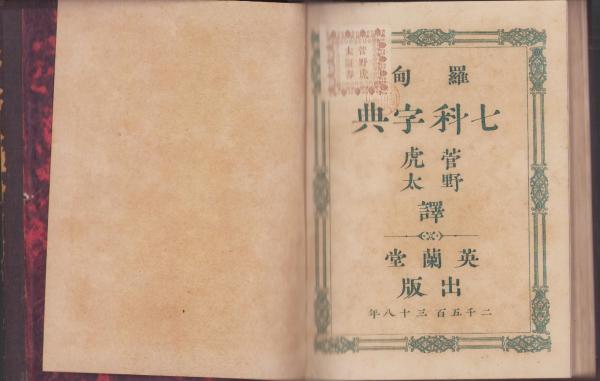 菅野虎
羅甸
七科字典
菅野
虎太
譯
英蘭堂
出版
二千五百三十八年